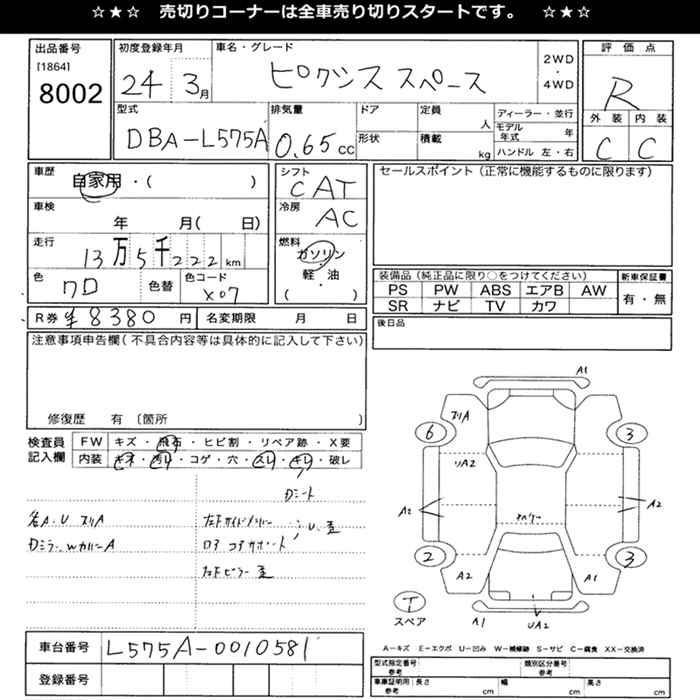 ☆★☆ 売切りコーナーは全車売り切りスタートです。 ☆★☆
出品番号
[1864]
8002
初度登録年月
24 3月
車名・グレード
ピクシス スペース
2WD
・
4WD
評価点
R
外装 内装
C C
型式
DBA-L575A
排気量
0.65cc
ドア
形状
定員
人
積載
kg
ディーラー・並行
モデル年式 年
ハンドル 左・右
車歴
自家用・( )
車検
年 月( 日)
走行
13万5千222km
色
クロ
色替
色コード
X07
シフト
CAT
冷房
AC
燃料
ガソリン
・
軽・油
( )
セールスポイント(正常に機能するものに限ります)
装備品(純正品に限り○をつけてください)
PS PW ABS エアB AW
SR ナビ TV カワ
新車保証書
有・無
後日品
R券 ¥8380円
名変期限 月 日
注意事項申告欄(不具合内容等は具体的に記入して下さい)
修復歴 有 〔箇所 〕
検査員記入欄
FW キズ・飛石・ヒビ割・リペア跡・X要
内装 キズ・汚れ・コゲ・穴・スレ・キレ・破レ
各A.U スリA
左F サイドメンバー
U.歪
コアサポート
左Fピラー 歪
A1
スリA
6
3
リA2
A2
A2
2
3
A2
A1
T
スペア
A1
UA2
車台番号
L575A-0010581
登録番号
A-キズ E-エクボ U-凹み W-補修跡 S-サビ C-腐食 XX-交換済
型式指定番号
参考
類別区分番号
参考
車庫証明用
参考
長さ cm
幅 cm
高さ cm